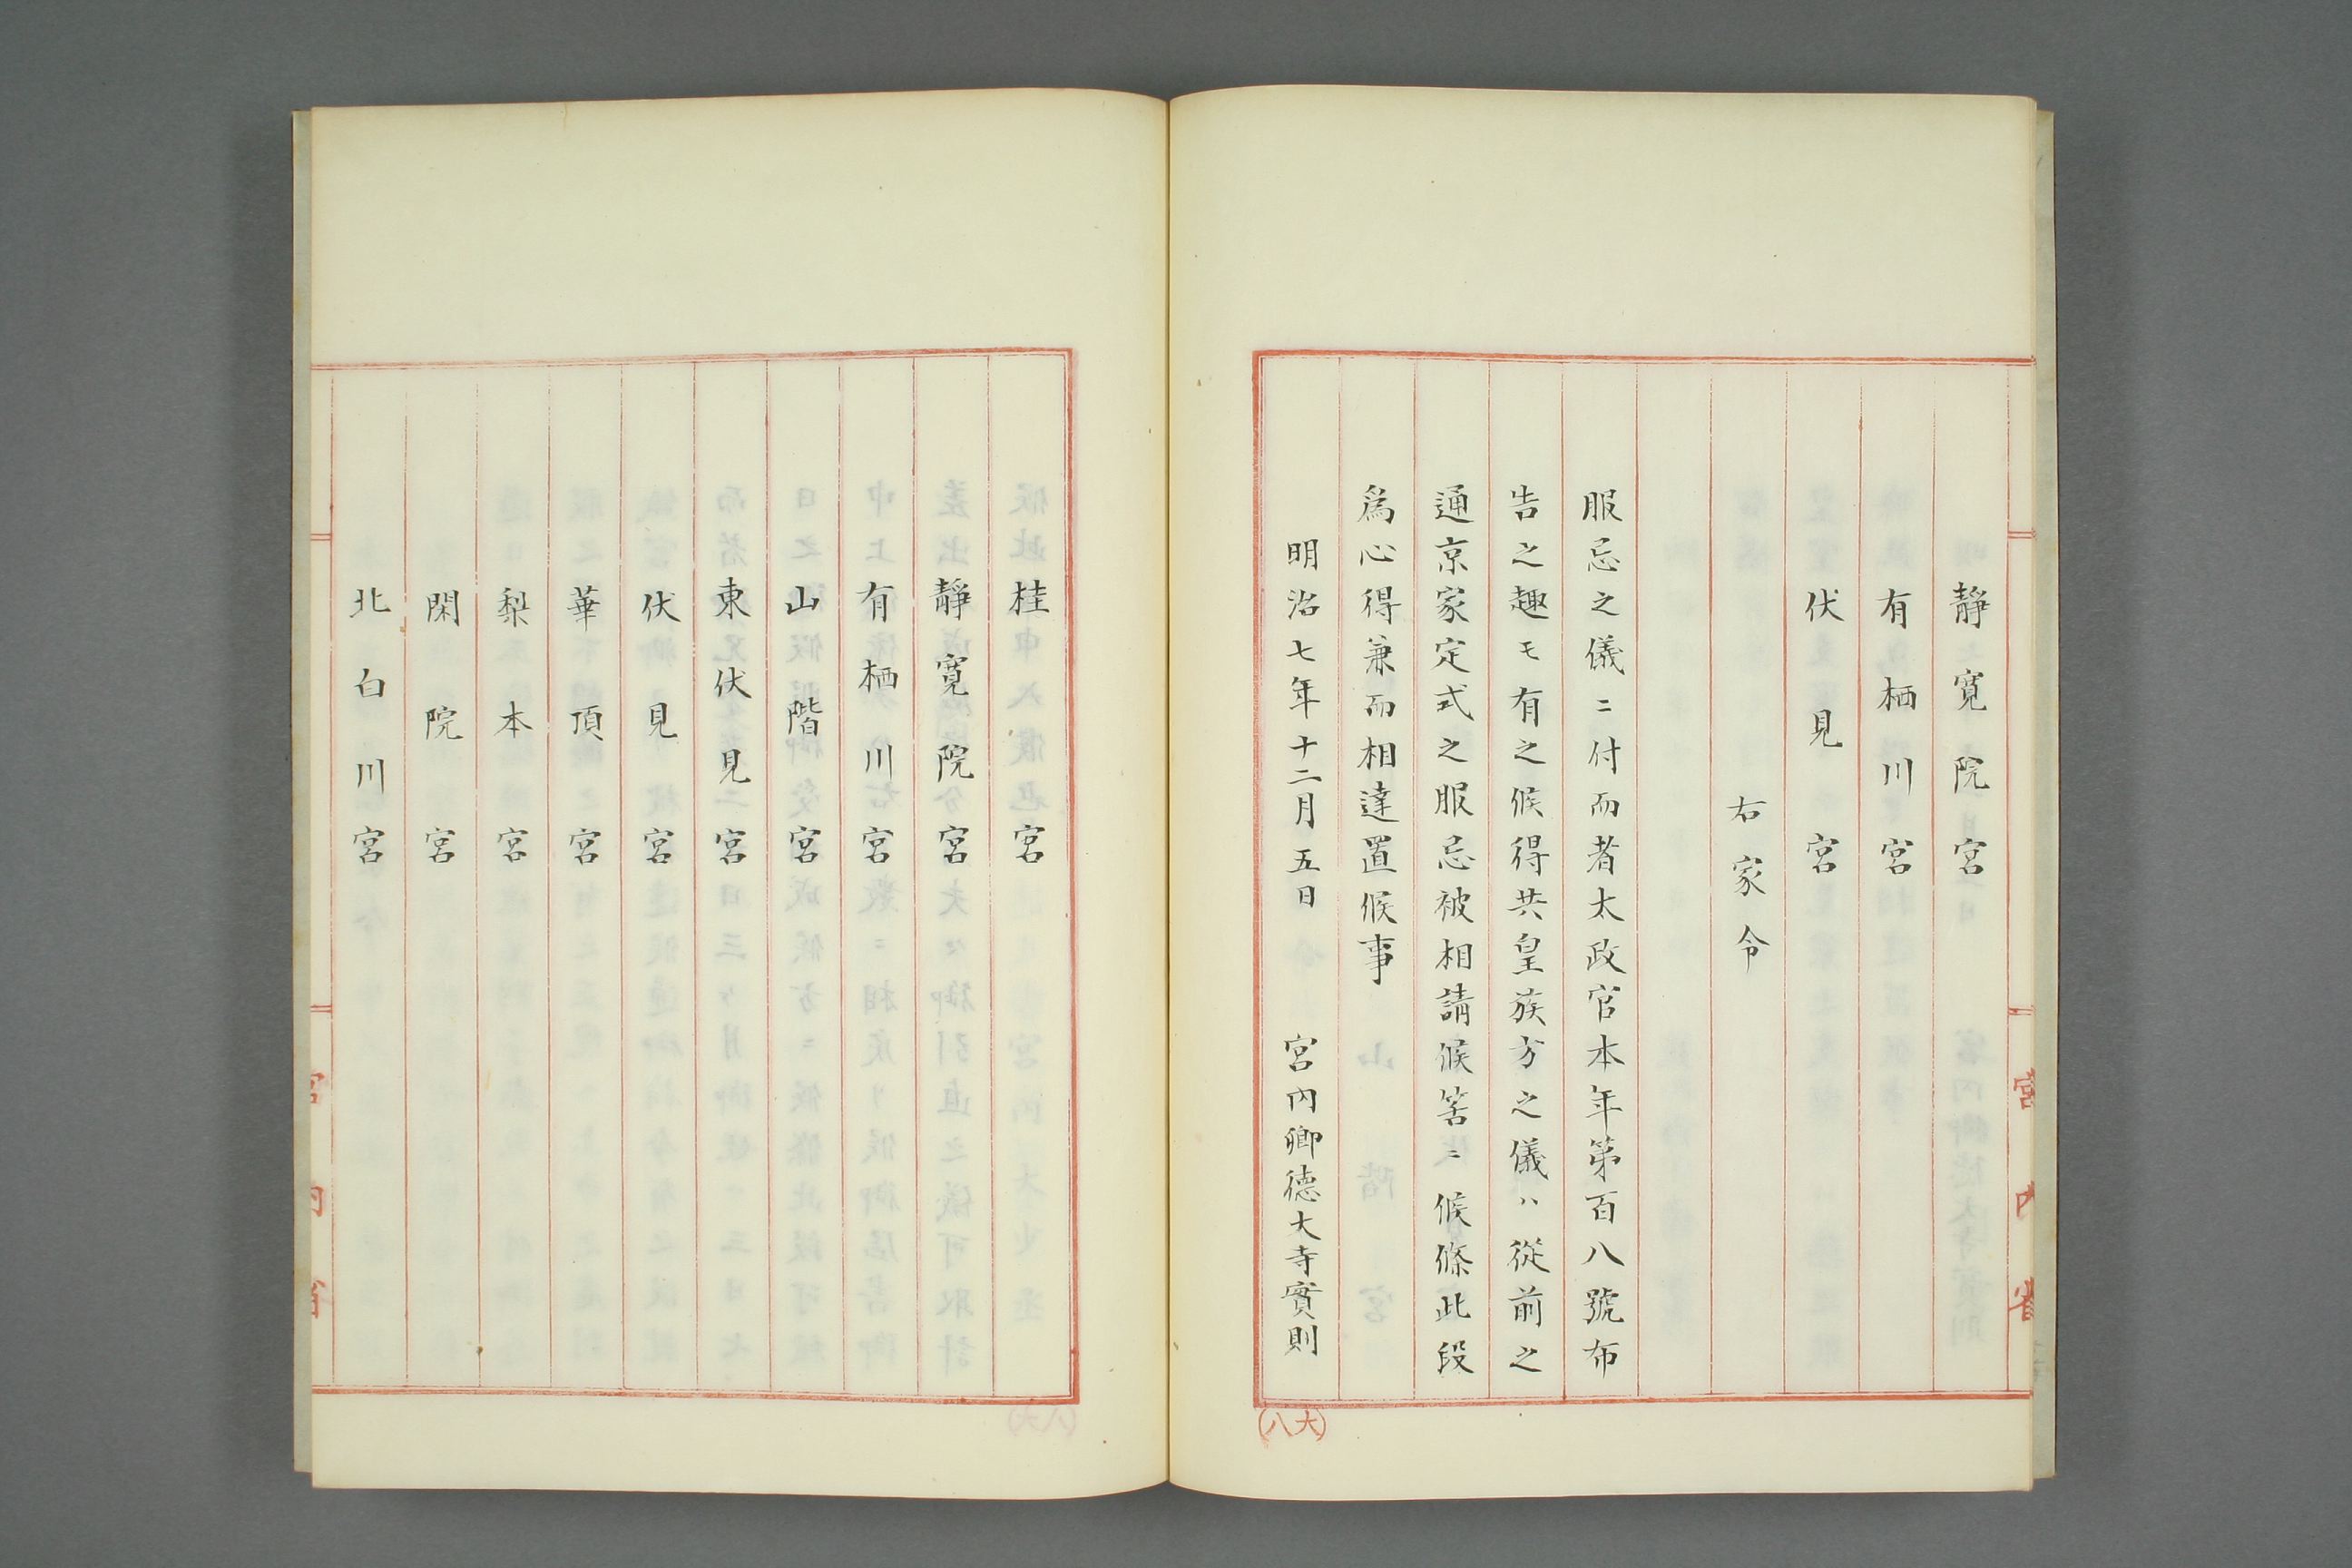 靜寛院宮
有栖川宮
伏見宮
右家令
服忌之儀ニ付而者太政官本年第百八號布
告之趣モ有之候得共皇族方之儀ハ從前之
通京家定式之服忌被相請候筈ニ候條此段
為心得兼而相達置候事
明治七年十二月五日　宮内卿德大寺實則
(八大)
宮内省
桂宮
靜寛院宮
有栖川宮
山階宮
東伏見宮
伏見宮
華頂宮
梨本宮
閑院宮
北白川宮
宮内省